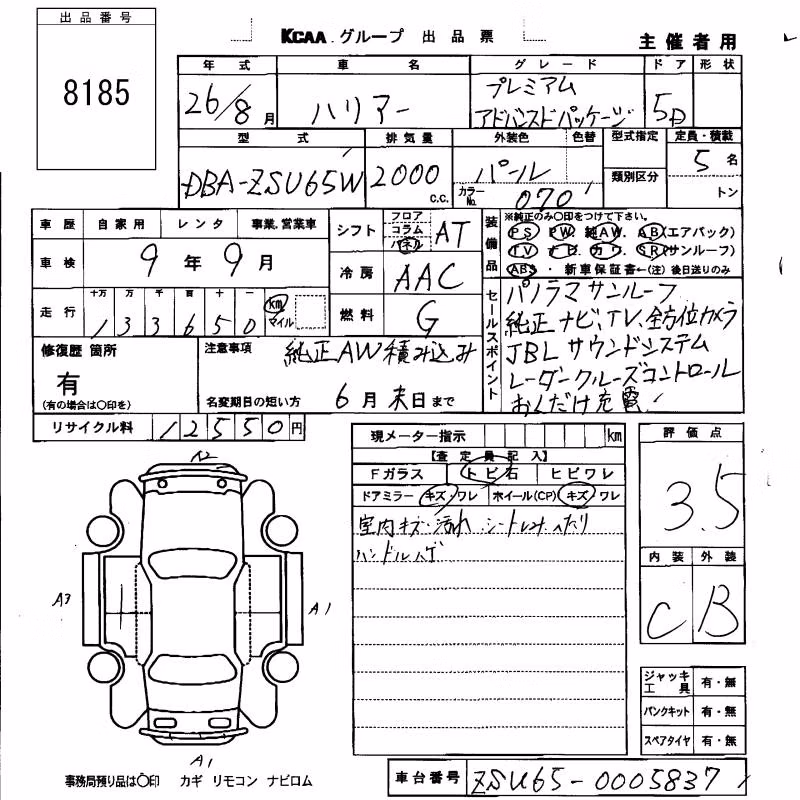 出品番号
8185
KCAA グループ 出品票
主催者用
年式 車名 グレード ドア 形状
26/8月 ハリアー プレミアム アドバンスドパッケージ 5D
型式 排気量 外装色 色替 型式指定 定員・積載
DBA-ZSU65W 2000 c.c. パール 5名
カラーNo. 070 類別区分 トン
車歴 自家用 レンタ 事業、営業車
シフト フロア コラム パネル AT
車検 9年9月
冷房 AAC
走行 十万 万 千 百 十 一
133650 km マイル
燃料 G
装備品 ※純正のみ〇印をつけて下さい。
PS PW 純AW AB(エアバック)
TV ナビ カワ SR(サンルーフ)
ABS ・ 新車保証書←(注) 後日送りのみ
セールスポイント
パノラマサンルーフ
純正ナビ、TV、全方位カメラ
JBL サウンドシステム
レーダークルーズコントロール
おくだけ充電!
修復歴 箇所
有
(有の場合は〇印を)
注意事項 純正AW積み込み
名変期日の短い方 6月末日まで
リサイクル料 12550円
現メーター指示 km
【査定員記入】
Fガラス トビ石 ヒビワレ
ドアミラー キズ・ワレ ホイール(CP) キズ・ワレ
室内キズ・汚れ シートしみ、へたり
ハンドルハゲ
評価点
3.5
内装 外装
C B
ジャッキ工具 有・無
パンクキット 有・無
スペアタイヤ 有・無
A2
A3
A1
A1
事務局預り品は〇印 カギ リモコン ナビロム
車台番号 ZSU65-0005837